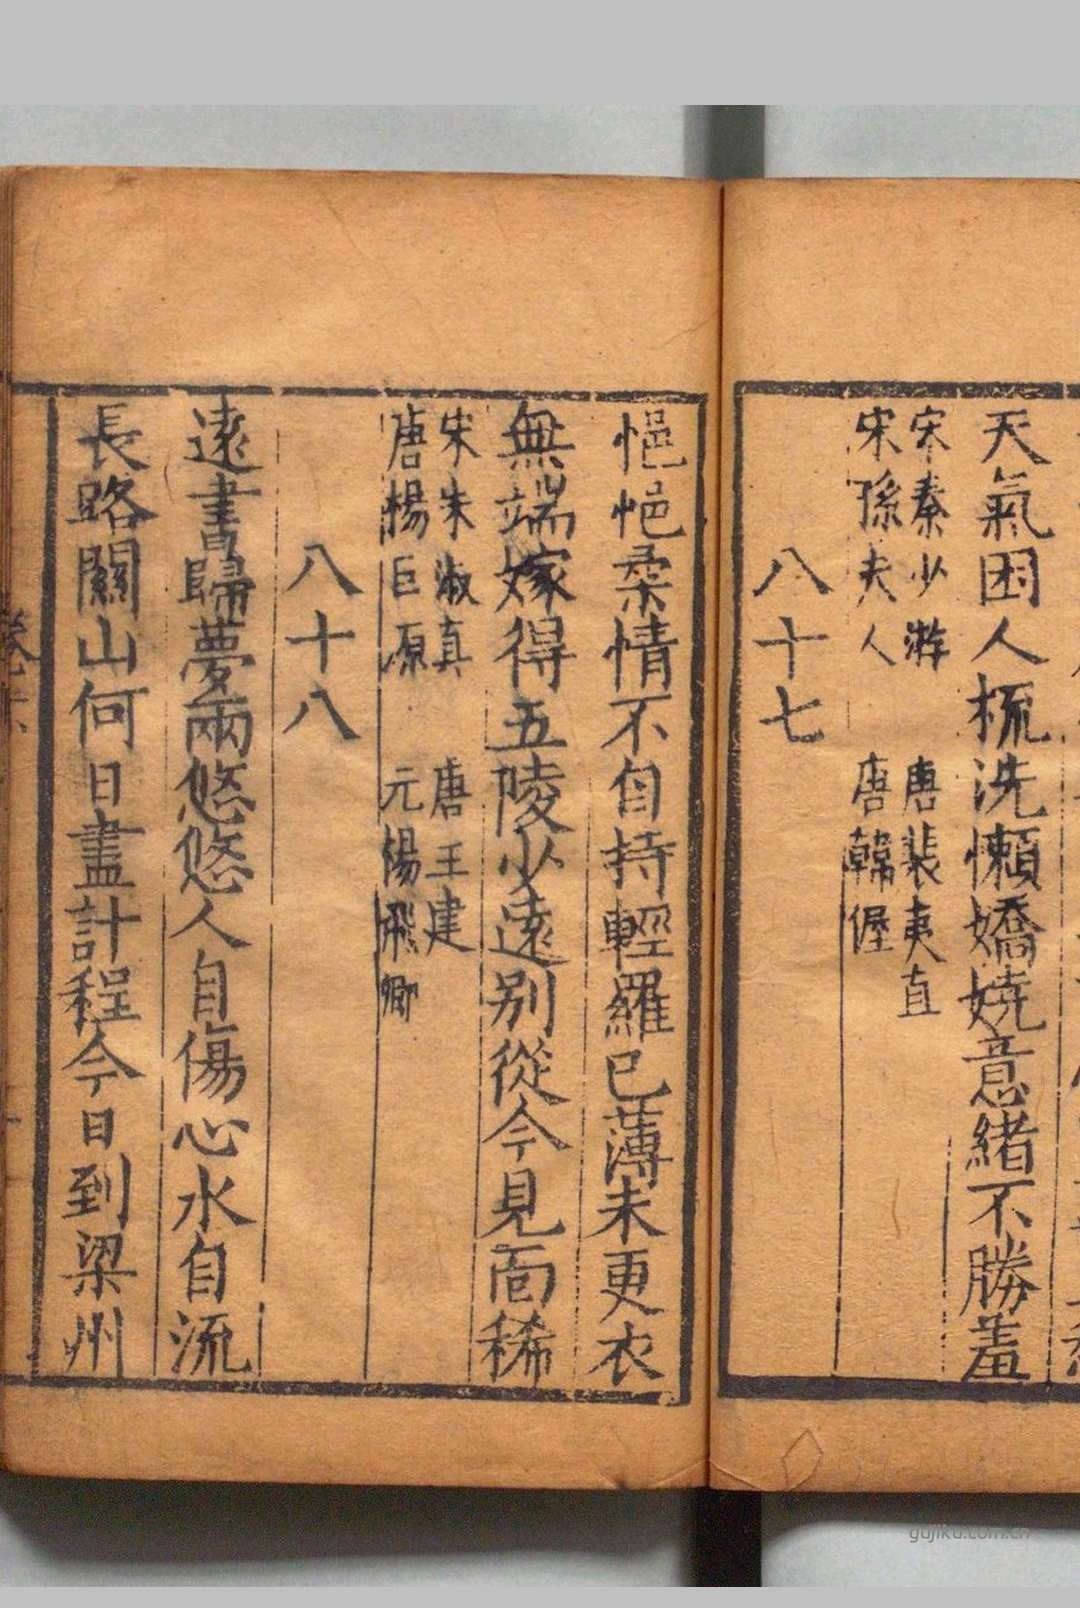 天氣困人梳洗懶嬌嬈意緒不勝羞
宋秦少游　唐裴夷直
宋孫夫人　唐韓偓
八十七
悒悒柔情不自持輕羅已薄未更衣
無端嫁得五陵少遠別從今見面稀
宋朱淑真　唐王建
唐楊巨源　元楊飛卿
八十八
遠書歸夢兩悠悠人自傷心水自流
長路關山何日盡計程今日到梁州
卷六
gujiku.com.cn